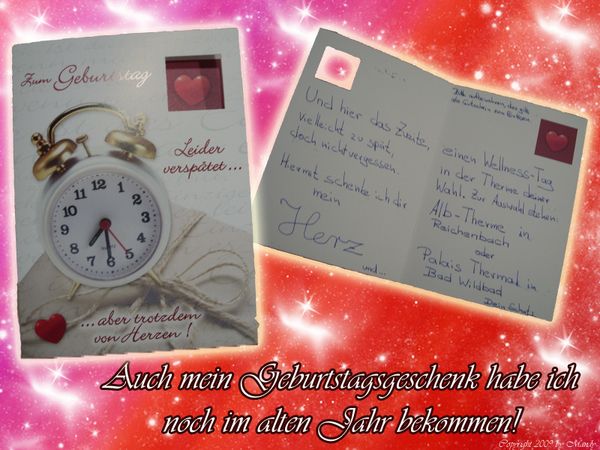 Zum Geburtstag
Leider
verspätet...
12
1
2
3
4
5
6
7
8
9
10
11
...aber trotzdem
von Herzen!
Und hier das Zweite,
vielleicht zu spät,
doch nicht vergessen.
Hiermit schenke ich dir
mein
Herz
und...
Bitte aufbewahren, das gilt
als Gutschein zum Einlösen
einen Wellness-Tag
in der Therme deiner
Wahl. Zur Auswahl stehen:
Alb-Therme in
Reichenbach
oder
Palais Thermal in
Bad Wildbad
Dein
Auch mein Geburtstagsgeschenk habe ich
noch im alten Jahr bekommen!
Copyright 2009 by Mandy